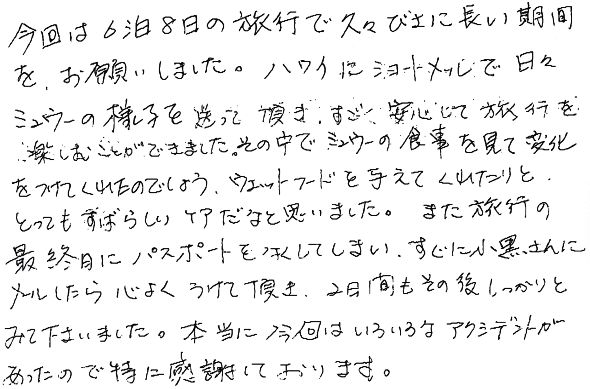 今回は6泊8日の旅行で久々びさに長い期間
を、お願いしました。ハワイにショートメッレで日々
ミュウーの様子を送って頂き、すごく安心して旅行を
楽しむことができました。その中でミュウーの食事を見て変化
をつけてくれたのでしょう、ウェットフードを与えてくれたりと、
とってもすばらしいケアだなと思いました。また旅行の
最終日にパスポートを失くしてしまい、すぐに小黒さんに
メルしたら心よくうけて頂き、2日間もその後しっかりと
みて下さいました。本当に今回はいろいろなアクシデントが
あったので特に感謝しております。